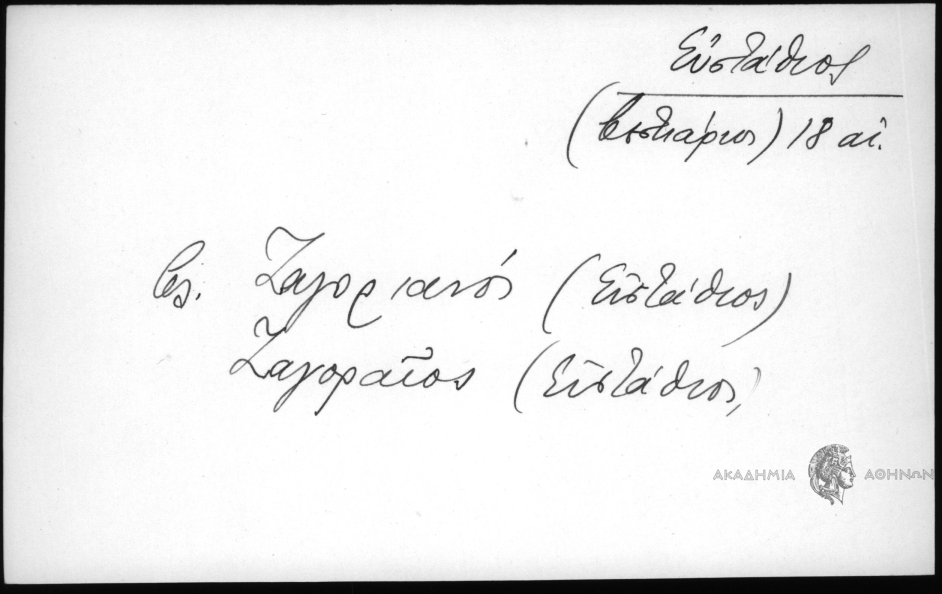 Εὐστάθιος
(βεστιάριος) 18 αἰ.
βλ. Ζαγοριανός (Εὐστάθιος)
Ζαγοραῖος (Εὐστάθιος)
ΑΚΑΔΗΜΙΑ ΑΘΗΝΩΝ